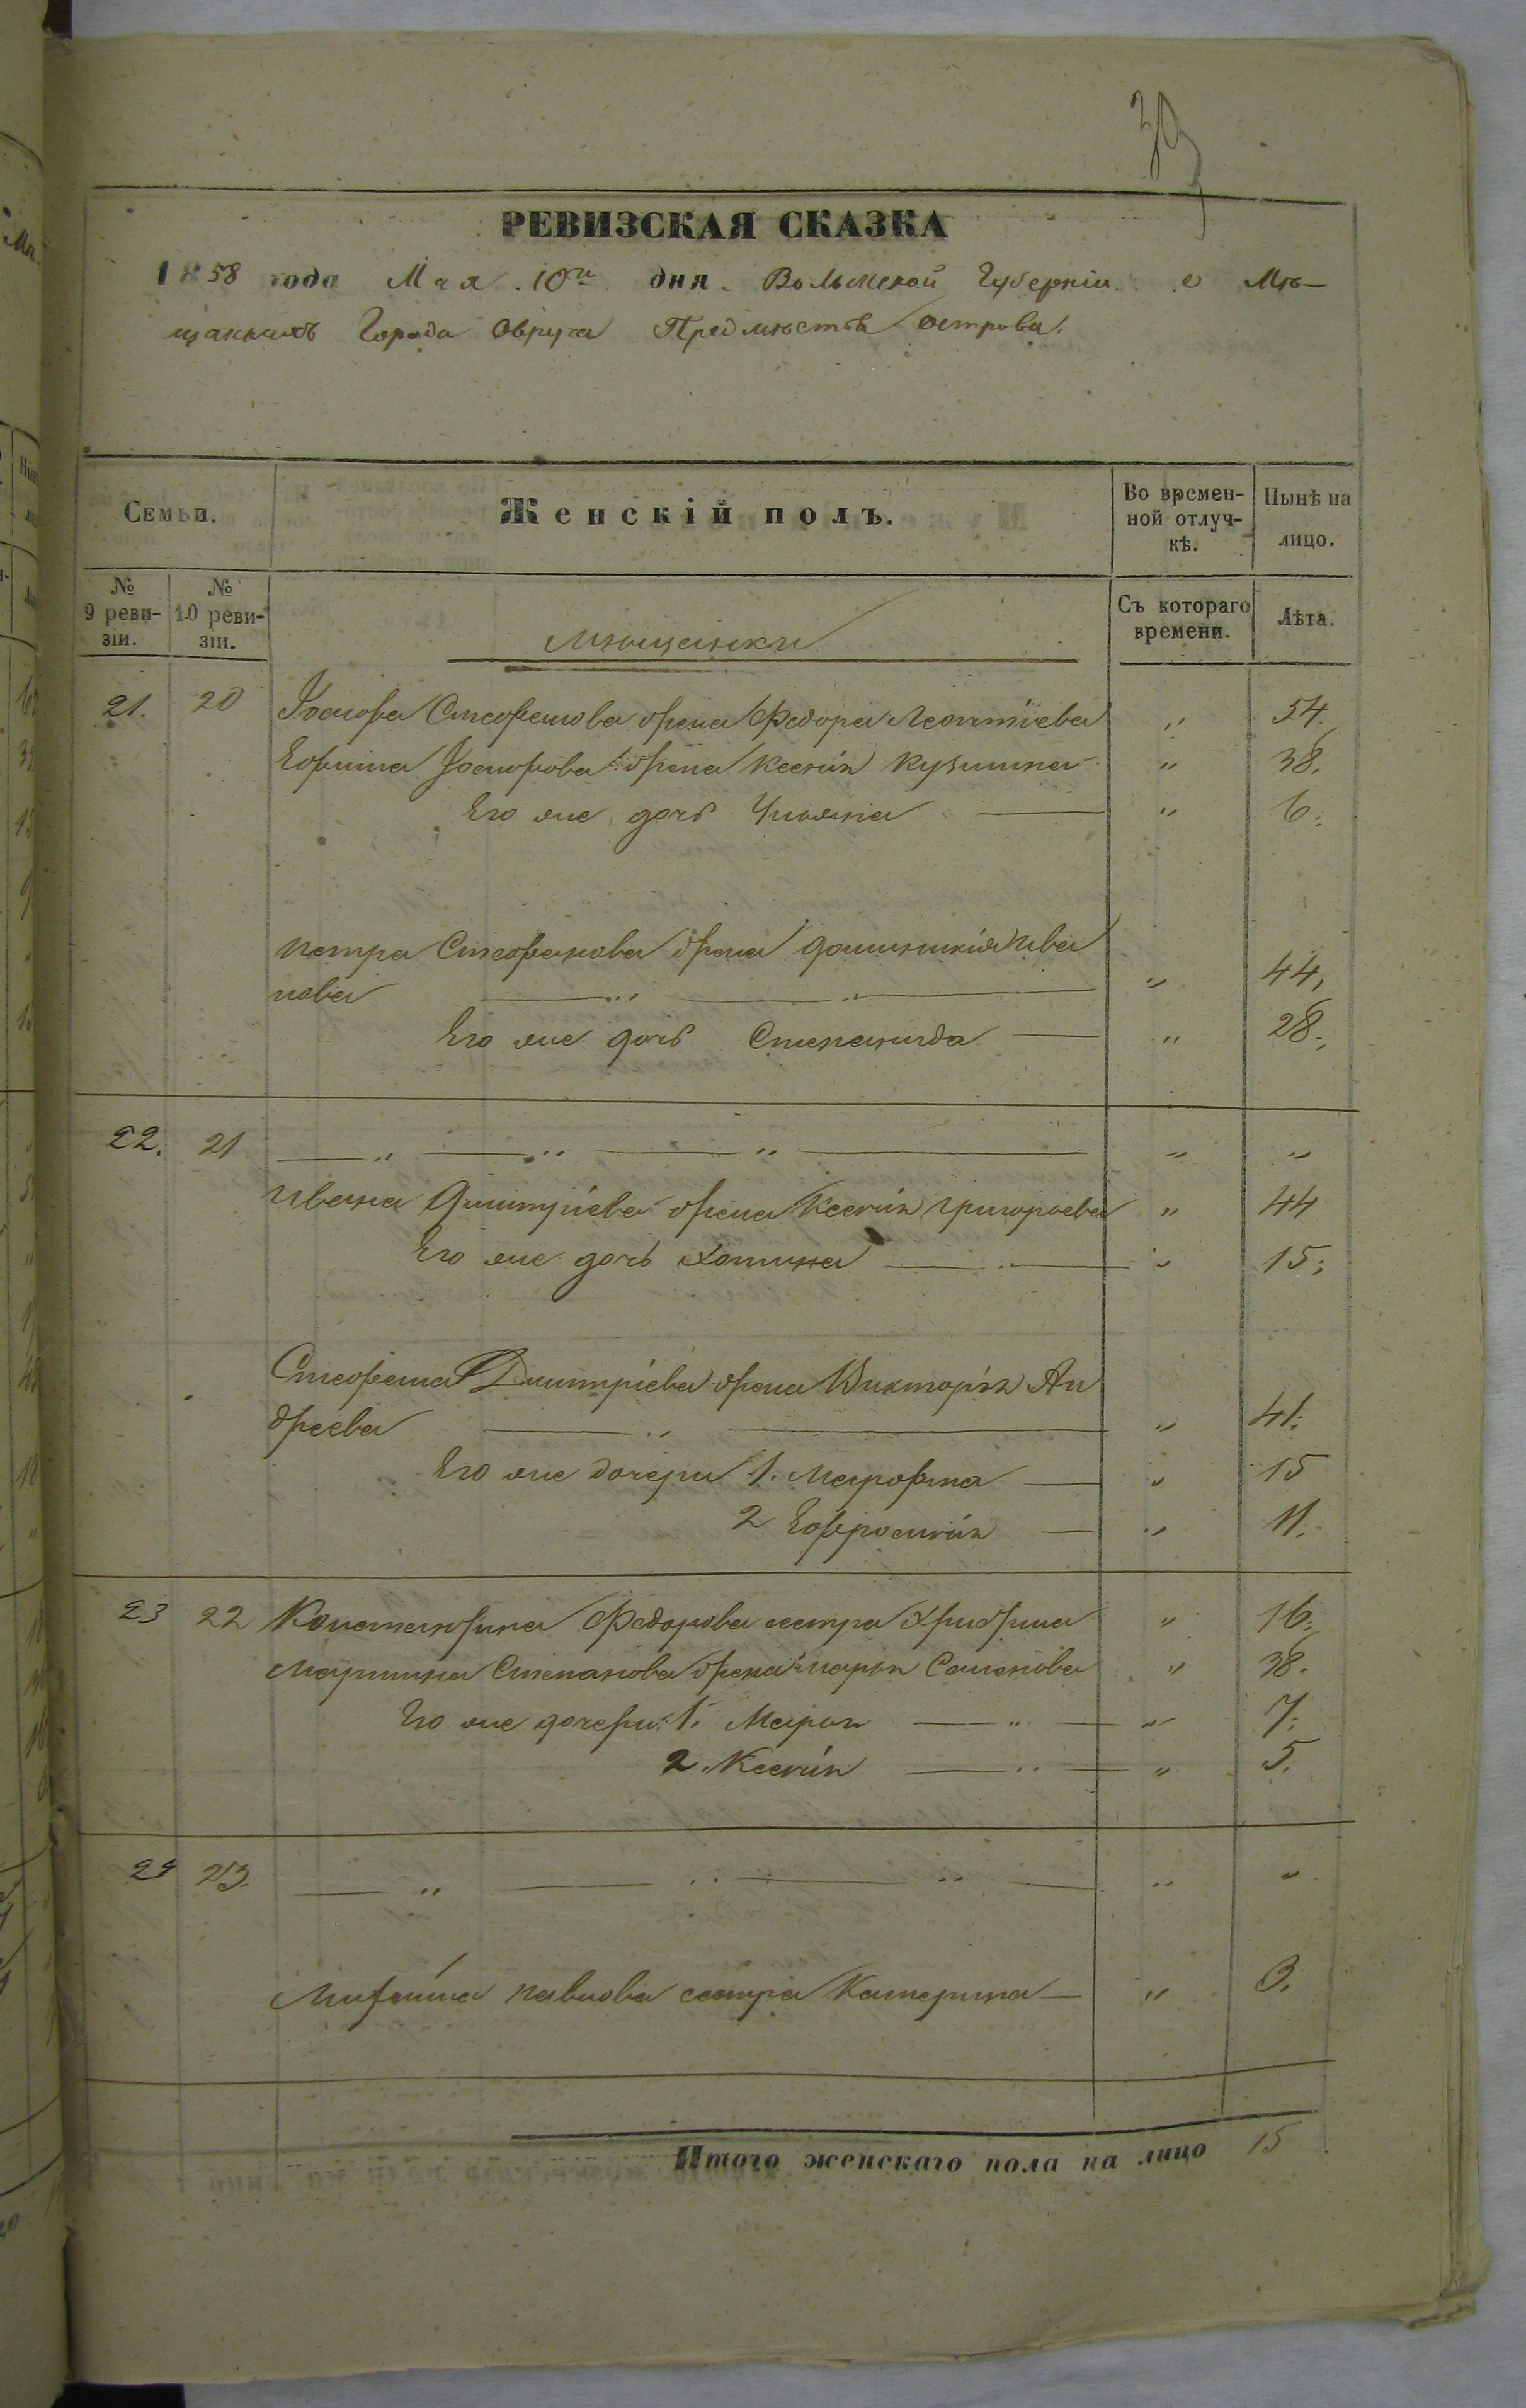 39
РЕВИЗСКАЯ СКАЗКА
1858 года Мая 10го дня Волынской Губерніи о Мѣ-
щанахъ Города Овруча Предмѣстья Острова.
Семьи. Женскій полъ. Во времен-ной отлуч-кѣ. Нынѣ на лицо.
№ 9 реви-зіи. № 10 реви-зіи. Мѣщанки Съ котораго времени. Лѣта.
21. 20 Іосифа Стефанова жена Федора Леонтіева " 54.
Ефима Іосифова жена Ксенія Кузмина " 38.
Его же дочь Ульяна " 6.
Петра Стефанова жена Домникія Ива
нова " 44,
Его же дочь Степанида " 28.
22. 21 " " " " "
Ивана Дмитріева жена Ксенія Григорьева " 44
Его же дочь Хотина " 15;
Стефана Дмитріева жена Викторія Ан
дреева " 41.
Его же дочери 1. Марфа " 15
2 Ефросинія " 11.
23 22 Константина Федорова сестра " 16.
Мартина Степанова жена Марья Семенова " 38.
Его же дочери 1. Марья " " 7.
2. Ксенія " " 5.
24 23. " " " " "
Павлова сестра Катерина " 3.
Итого женскаго пола на лицо 15